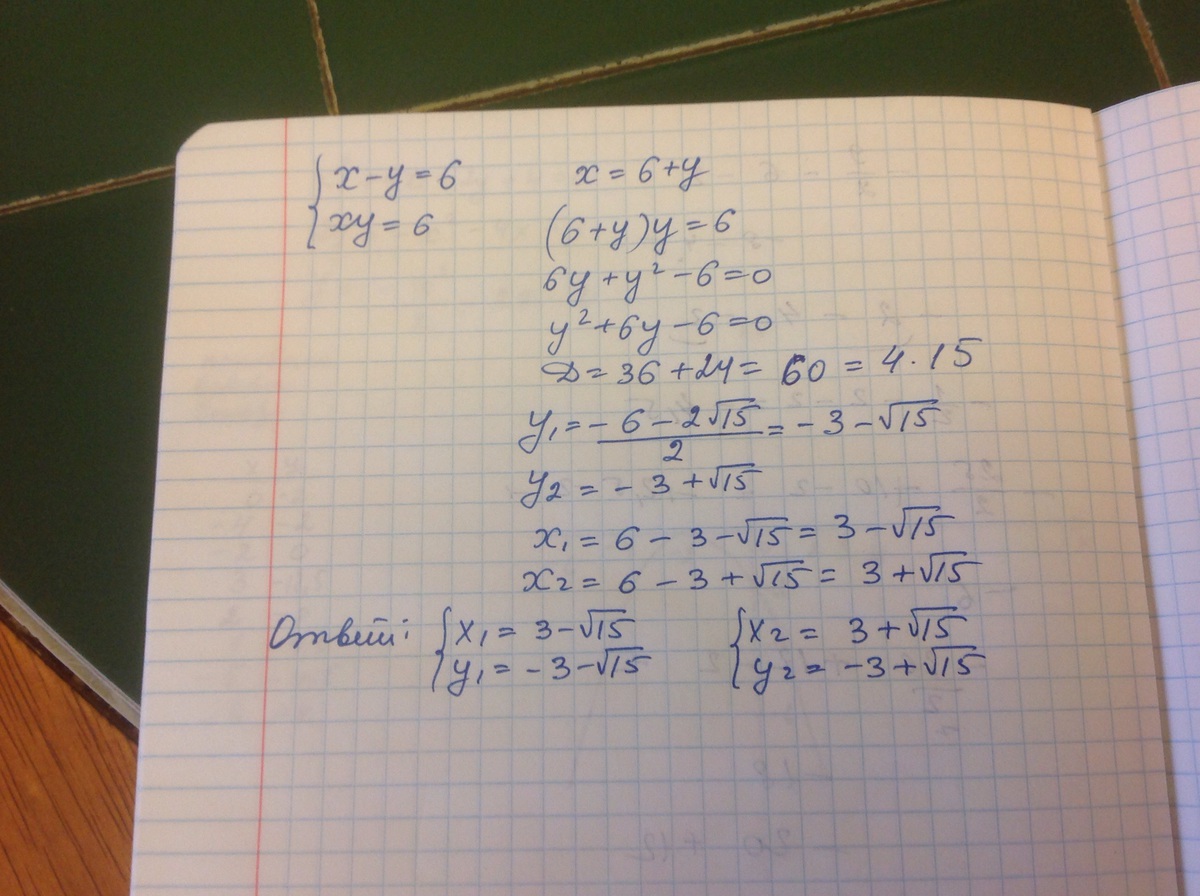 { x - y = 6    x = 6 + y
{ xy = 6    (6 + y)y = 6
6y + y² - 6 = 0
y² + 6y - 6 = 0
D = 36 + 24 = 60 = 4 · 15
y₁ = (- 6 - 2√15)/2 = - 3 - √15
y₂ = - 3 + √15
x₁ = 6 - 3 - √15 = 3 - √15
x₂ = 6 - 3 + √15 = 3 + √15
Ответ: { x₁ = 3 - √15    { x₂ = 3 + √15
{ y₁ = - 3 - √15    { y₂ = - 3 + √15